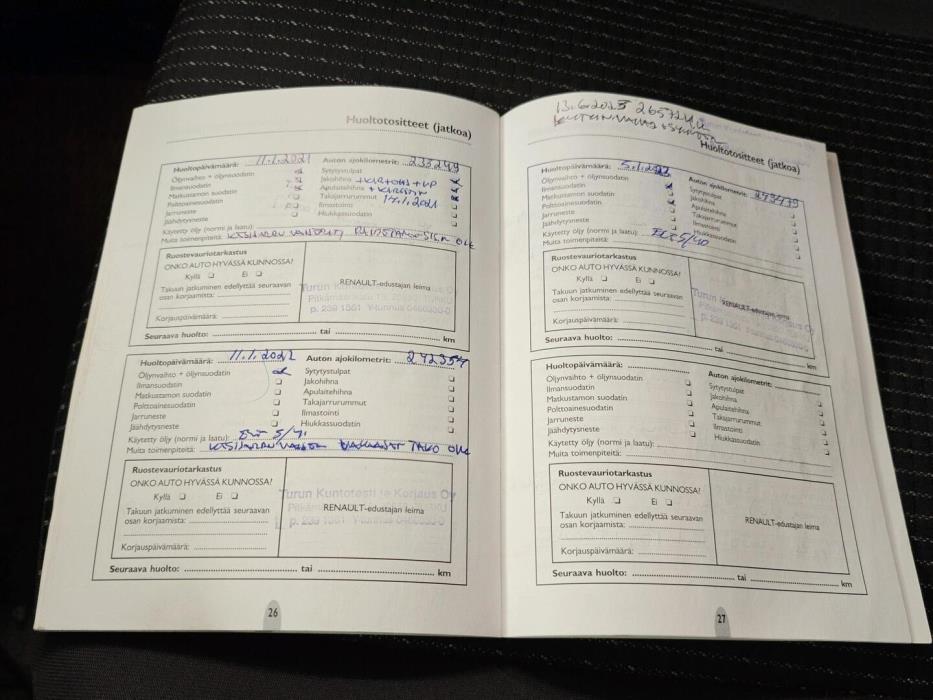 Huoltotositteet (jatkoa)
Huoltopäivämäärä: 11.1.2021 Auton ajokilometrit: 233249
Öljynvaihto + öljynsuodatin Sytytystulpat
Ilmansuodatin Jakohihna
Matkustamon suodatin Apulaitehihna
Polttoainesuodatin Takajarrurummut 14.1.2021
Jarruneste Ilmastointi
Jäähdytysneste Hiukkassuodatin
Käytetty öljy (normi ja laatu):
Muita toimenpiteitä:
Ruostevauriotarkastus
ONKO AUTO HYVÄSSÄ KUNNOSSA?
Kyllä Ei
Takuun jatkuminen edellyttää seuraavan
osan korjaamista:
Korjauspäivämäärä:
RENAULT-edustajan leima
Seuraava huolto: tai km
Huoltopäivämäärä: 11.1.2022 Auton ajokilometrit: 242354
Öljynvaihto + öljynsuodatin Sytytystulpat
Ilmansuodatin Jakohihna
Matkustamon suodatin Apulaitehihna
Polttoainesuodatin Takajarrurummut
Jarruneste Ilmastointi
Jäähdytysneste Hiukkassuodatin
Käytetty öljy (normi ja laatu):
Muita toimenpiteitä:
Ruostevauriotarkastus
ONKO AUTO HYVÄSSÄ KUNNOSSA?
Kyllä Ei
Takuun jatkuminen edellyttää seuraavan
osan korjaamista:
Korjauspäivämäärä:
Turun Kuntotesti ja Korjaus Oy
RENAULT-edustajan leima
Seuraava huolto: tai km
26
13.6.2023
Huoltotositteet (jatkoa)
Huoltopäivämäärä: Auton ajokilometrit: 243479
Öljynvaihto + öljynsuodatin Sytytystulpat
Ilmansuodatin Jakohihna
Matkustamon suodatin Apulaitehihna
Polttoainesuodatin Takajarrurummut
Jarruneste Ilmastointi
Jäähdytysneste Hiukkassuodatin
Käytetty öljy (normi ja laatu): 5/40
Muita toimenpiteitä:
Ruostevauriotarkastus
ONKO AUTO HYVÄSSÄ KUNNOSSA?
Kyllä Ei
Takuun jatkuminen edellyttää seuraavan
osan korjaamista:
Korjauspäivämäärä:
RENAULT-edustajan leima
Seuraava huolto: tai km
Huoltopäivämäärä: Auton ajokilometrit:
Öljynvaihto + öljynsuodatin Sytytystulpat
Ilmansuodatin Jakohihna
Matkustamon suodatin Apulaitehihna
Polttoainesuodatin Takajarrurummut
Jarruneste Ilmastointi
Jäähdytysneste Hiukkassuodatin
Käytetty öljy (normi ja laatu):
Muita toimenpiteitä:
Ruostevauriotarkastus
ONKO AUTO HYVÄSSÄ KUNNOSSA?
Kyllä Ei
Takuun jatkuminen edellyttää seuraavan
osan korjaamista:
Korjauspäivämäärä:
RENAULT-edustajan leima
Seuraava huolto: tai km
27